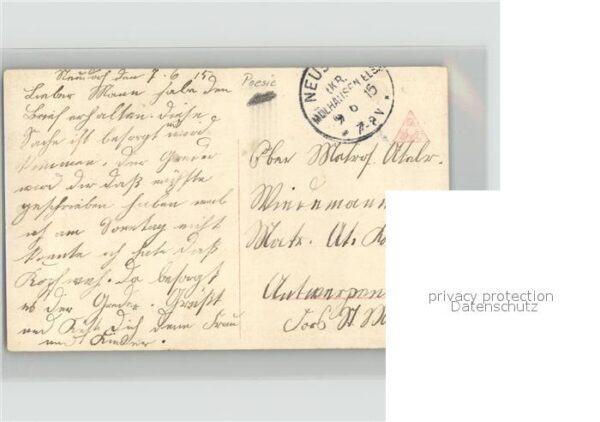 Neudorf den 7.6 15
Lieber Mann habe den
Brief erhalten. Diese
Sache ist besorgt
kommen. der
wird dir daß
geschrieben haben weil
ich am Sonntag nicht
konnte ich hate daß
Kopfweh. da besorgt
es der Grüßt
und Küßt Dich deine Frau
und Kinder.
Poesie
NEUS
(KR.
MÜLHAUSEN ELS.
9 6 15
* 7-8V *
Ober Matros. Artlr.
Wiedemann
Matr. At. Ko
Antwerpen
Fort St M
privacy protection
Datenschutz